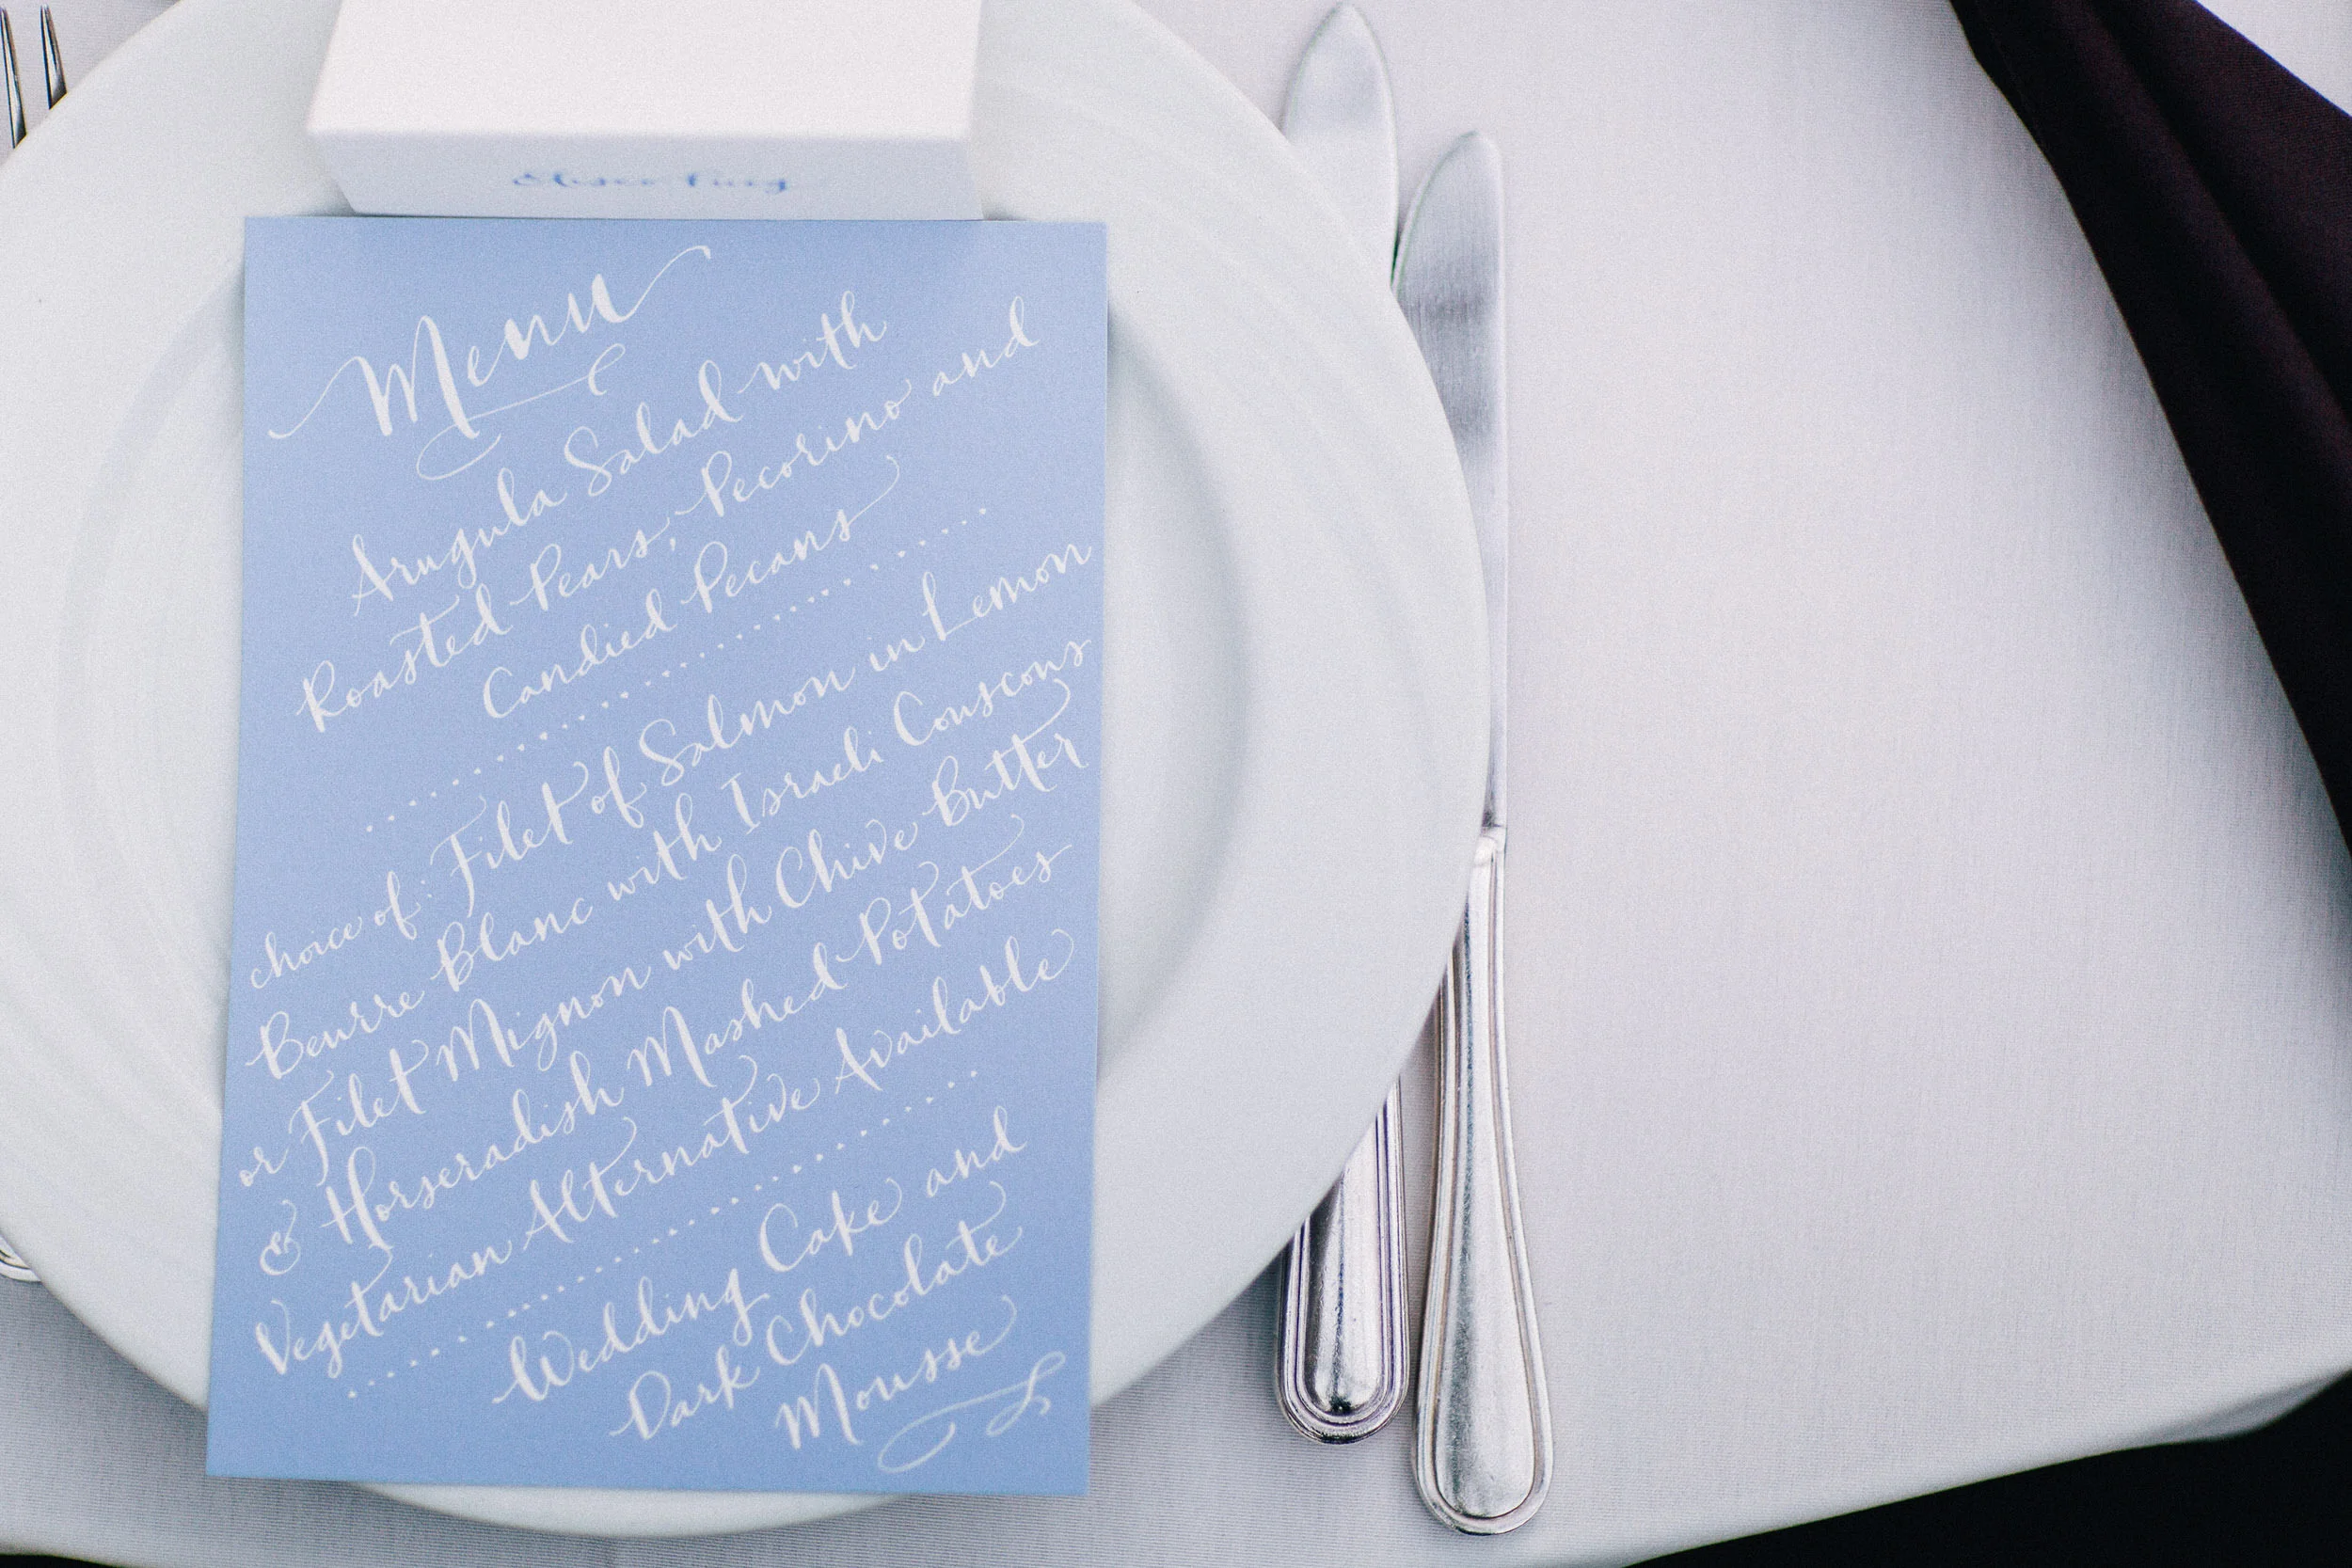 Menu
Arugula Salad with
Roasted Pears, Pecorino and
Candied Pecans
choice of: Filet of Salmon in Lemon
Beurre Blanc with Israeli Couscous
or Filet Mignon with Chive Butter
& Horseradish Mashed Potatoes
Vegetarian Alternative Available
Wedding Cake and
Dark Chocolate
Mousse